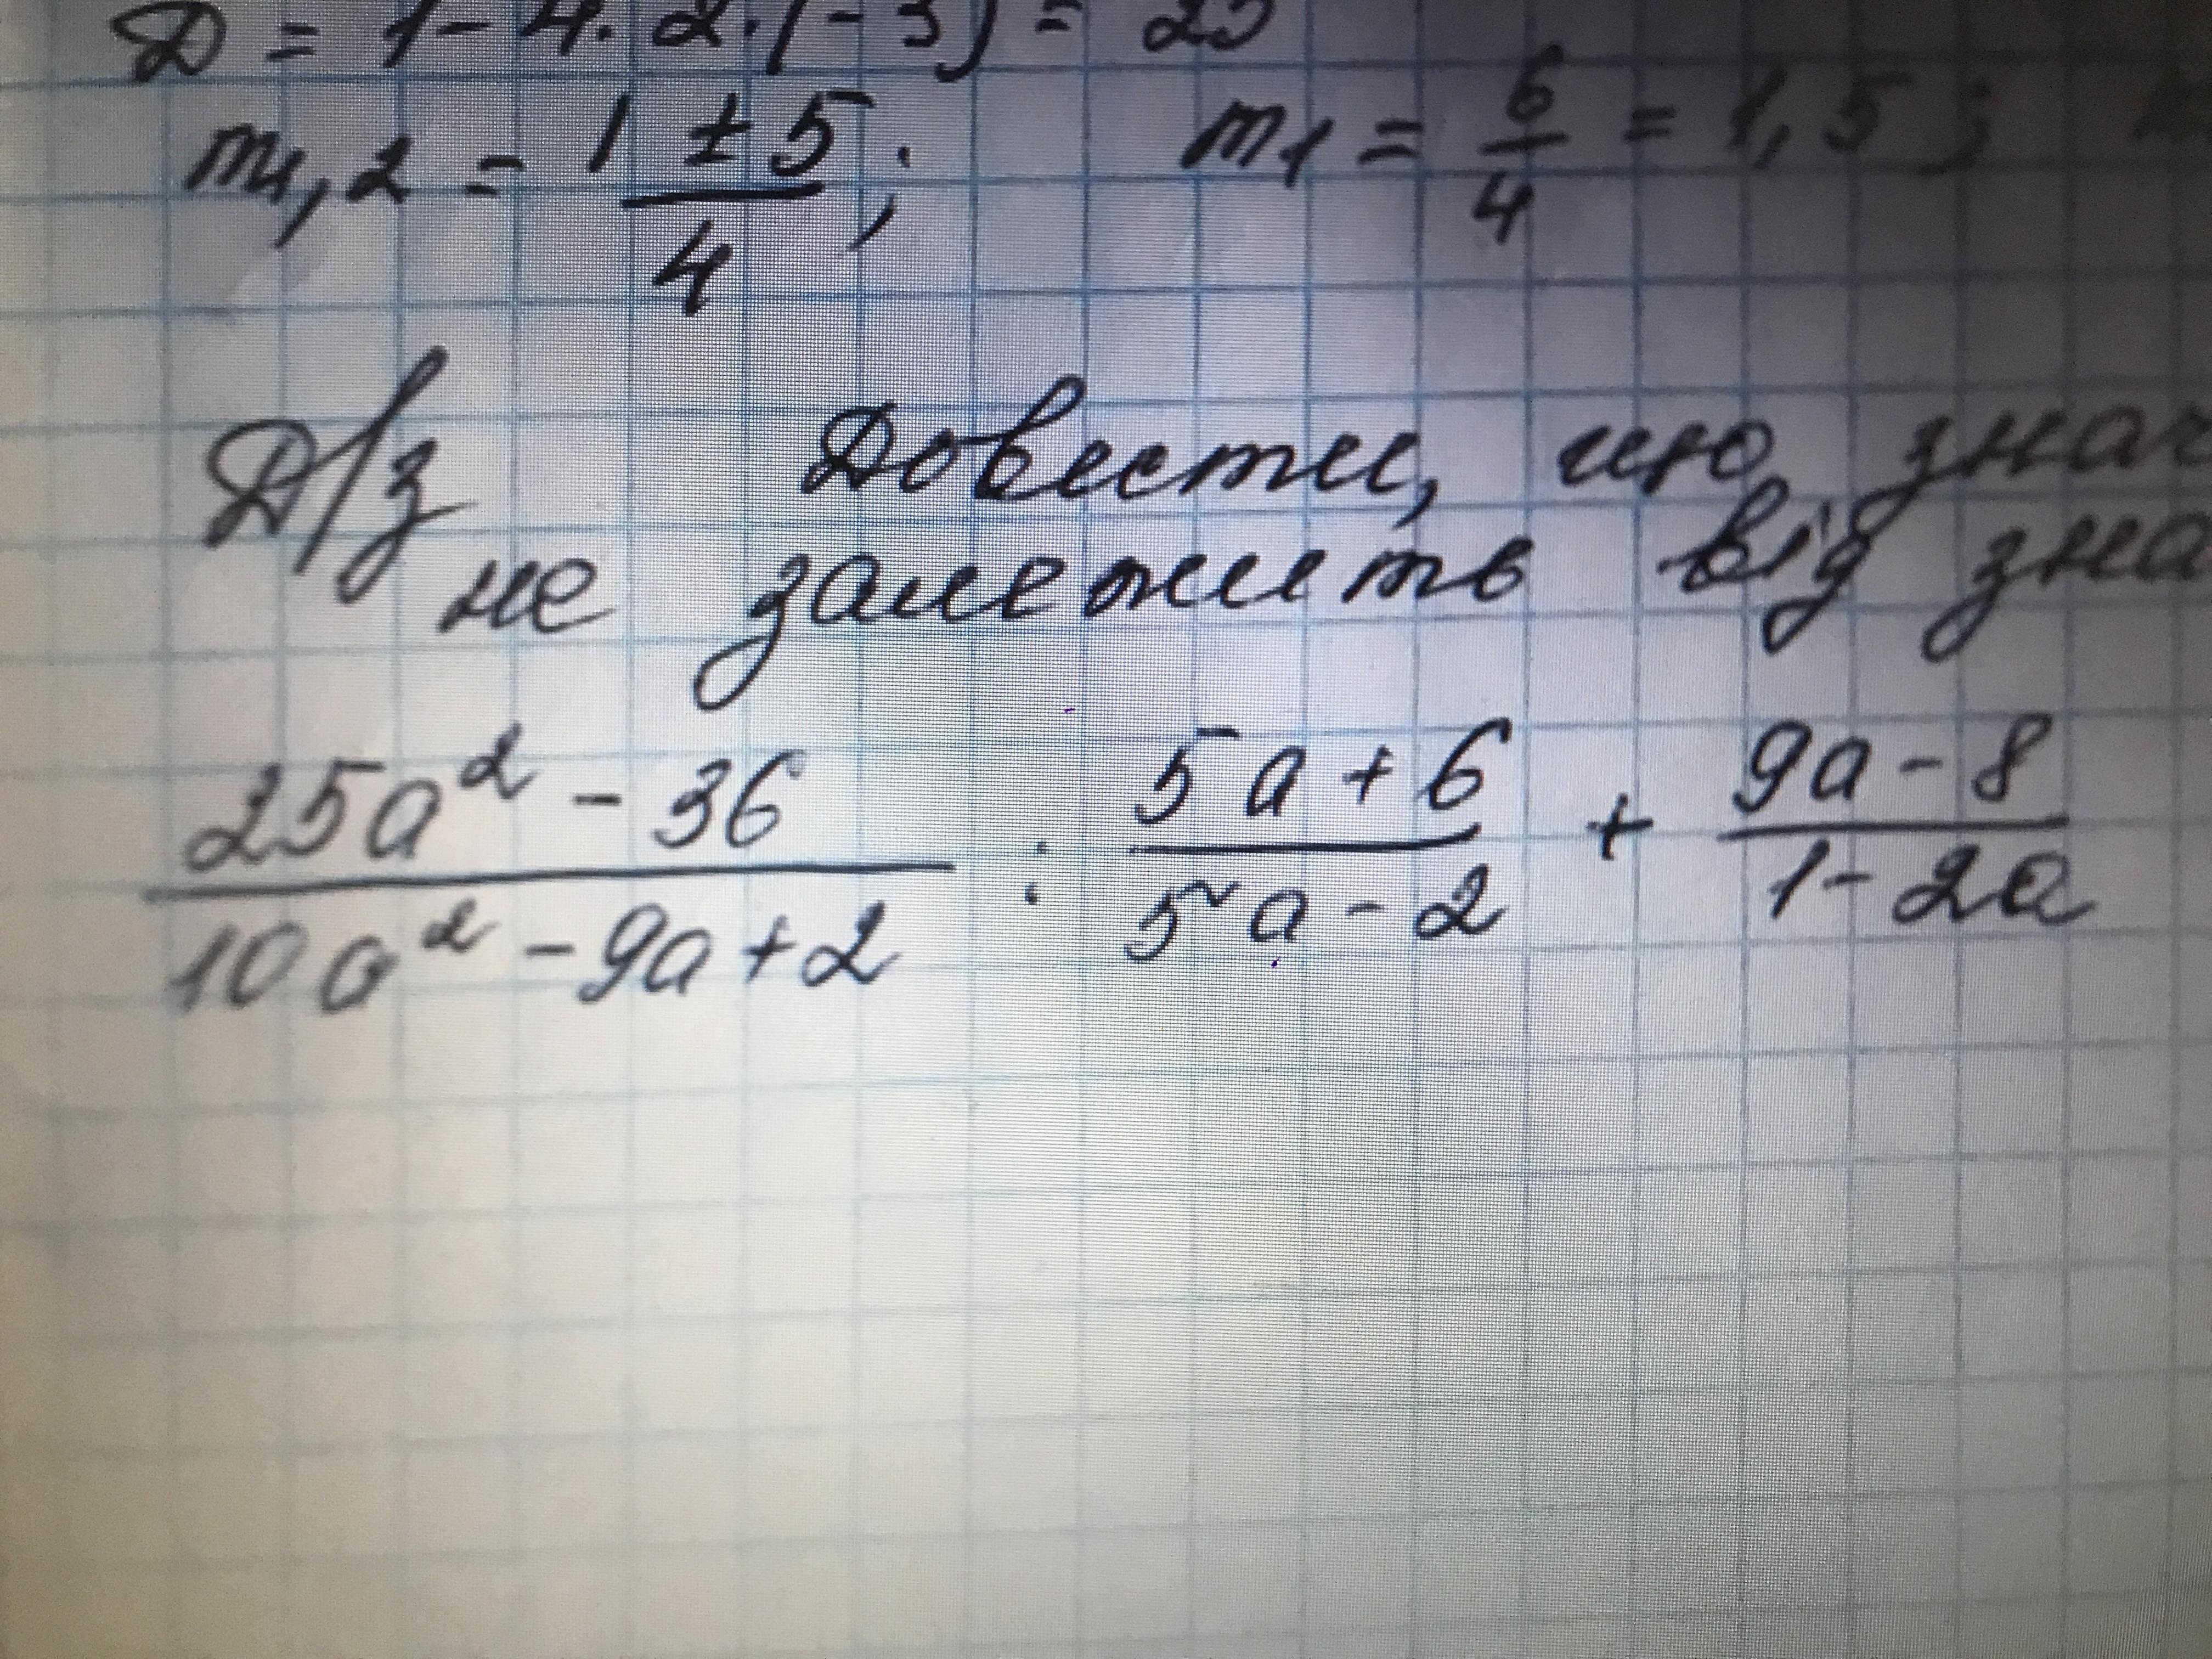 D = 1 - 4 · 2 · (-3) = 25
m1,2 = (1 ± 5)/4; m1 = 6/4 = 1,5;
Д/з Довести, що знач
не залежить від зна
(25a² - 36)/(10a² - 9a + 2) : (5a + 6)/(5a - 2) + (9a - 8)/(1 - 2a)